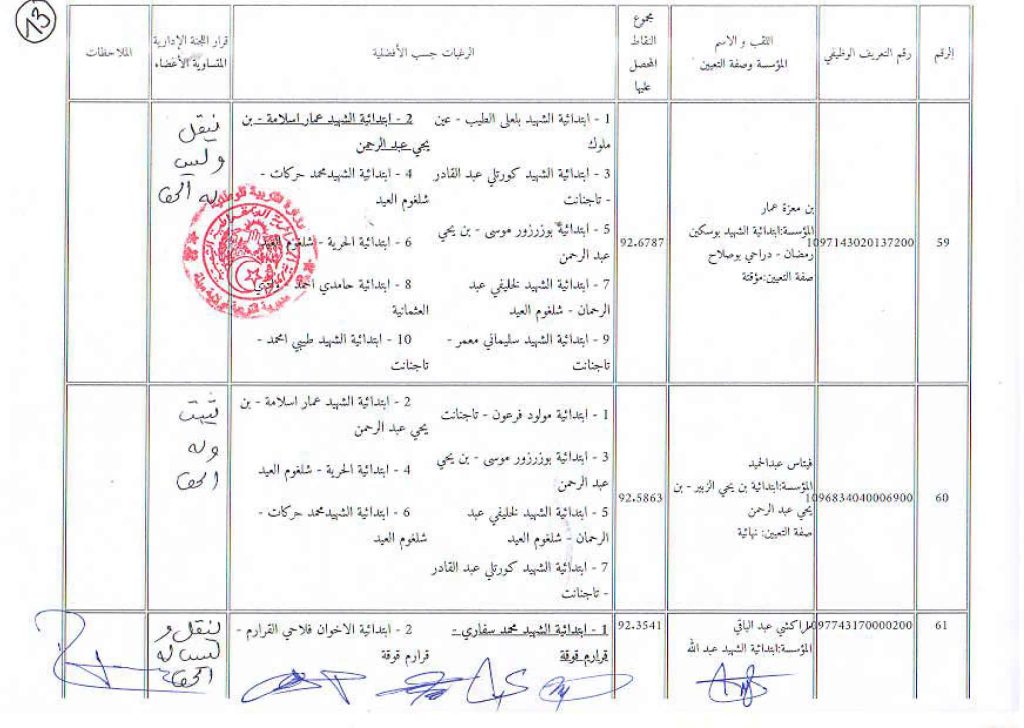 13
الرقم
رقم التعريف الوظيفي
اللقب و الاسم
المؤسسة وصفة التعيين
مجموع
النقاط
المحصل
عليها
الرغبات حسب الأفضلية
قرار اللجنة الإدارية
المتساوية الأعضاء
الملاحظات
59
1097143020137200
بن معزة عمار
المؤسسة:ابتدائية الشهيد بوسكين
رمضان - دراحي بوصلاح
صفة التعيين:مؤقتة
92.6787
1 - ابتدائية الشهيد بلعلى الطيب - عين
ملوك
2 - ابتدائية الشهيد عمار اسلامة - بن
يحي عبد الرحمن
3 - ابتدائية الشهيد كورتلي عبد القادر
- تاجنانت
4 - ابتدائية الشهيدمحمد حركات -
شلغوم العيد
5 - ابتدائية بوزرزور موسى - بن يحي
عبد الرحمن
6 - ابتدائية الحرية - شلغوم العيد
7 - ابتدائية الشهيد لخليفي عبد
الرحمان - شلغوم العيد
8 - ابتدائية حامدي احمد - وادي
العثمانية
9 - ابتدائية الشهيد سليماني معمر -
تاجنانت
10 - ابتدائية الشهيد طيبي امحمد -
تاجنانت
ينقل
وليس
له الحق
60
1096834040006900
فيتاس عبدالحميد
المؤسسة:ابتدائية بن يحي الزبير - بن
يحي عبد الرحمن
صفة التعيين: نهائية
92.5863
1 - ابتدائية مولود فرعون - تاجنانت
2 - ابتدائية الشهيد عمار اسلامة - بن
يحي عبد الرحمن
3 - ابتدائية بوزرزور موسى - بن يحي
عبد الرحمن
4 - ابتدائية الحرية - شلغوم العيد
5 - ابتدائية الشهيد لخليفي عبد
الرحمان - شلغوم العيد
6 - ابتدائية الشهيدمحمد حركات -
شلغوم العيد
7 - ابتدائية الشهيد كورتلي عبد القادر
- تاجنانت
يثبت
وله
الحق
61
1097743170000200
مراكشي عبد الباقي
المؤسسة:ابتدائية الشهيد عبد الله
92.3541
1 - ابتدائية الشهيد محمد سفاري -
قرارم قوقة
2 - ابتدائية الاخوان فلاحي القرارم -
قرارم قوقة
ينقل و
ليس له
الحق